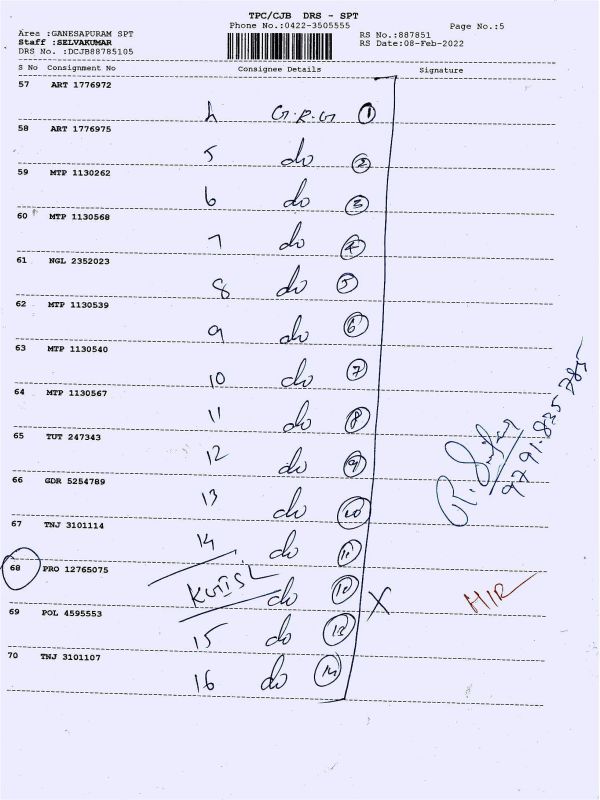 TPC/CJB DRS - SPT
Phone No.:0422-3505555
Page No.:5
Area :GANESAPURAM SPT
Staff :SELVAKUMAR
DRS No. :DCJB88785105
RS No.:887851
RS Date:08-Feb-2022
S No Consignment No Consignee Details Signature
57 ART 1776972
G.R.G 1
58 ART 1776975
5 do 2
59 MTP 1130262
6 do 3
60 MTP 1130568
7 do 4
61 NGL 2352023
8 do 5
62 MTP 1130539
9 do 6
63 MTP 1130540
10 do 7
64 MTP 1130567
11 do 8
65 TUT 247343
12 do 9
66 GDR 5254789
13 do 10
67 TNJ 3101114
14 do 11
68 PRO 12765075
do 12 X
69 POL 4595553
15 do 13
70 TNJ 3101107
16 do 14